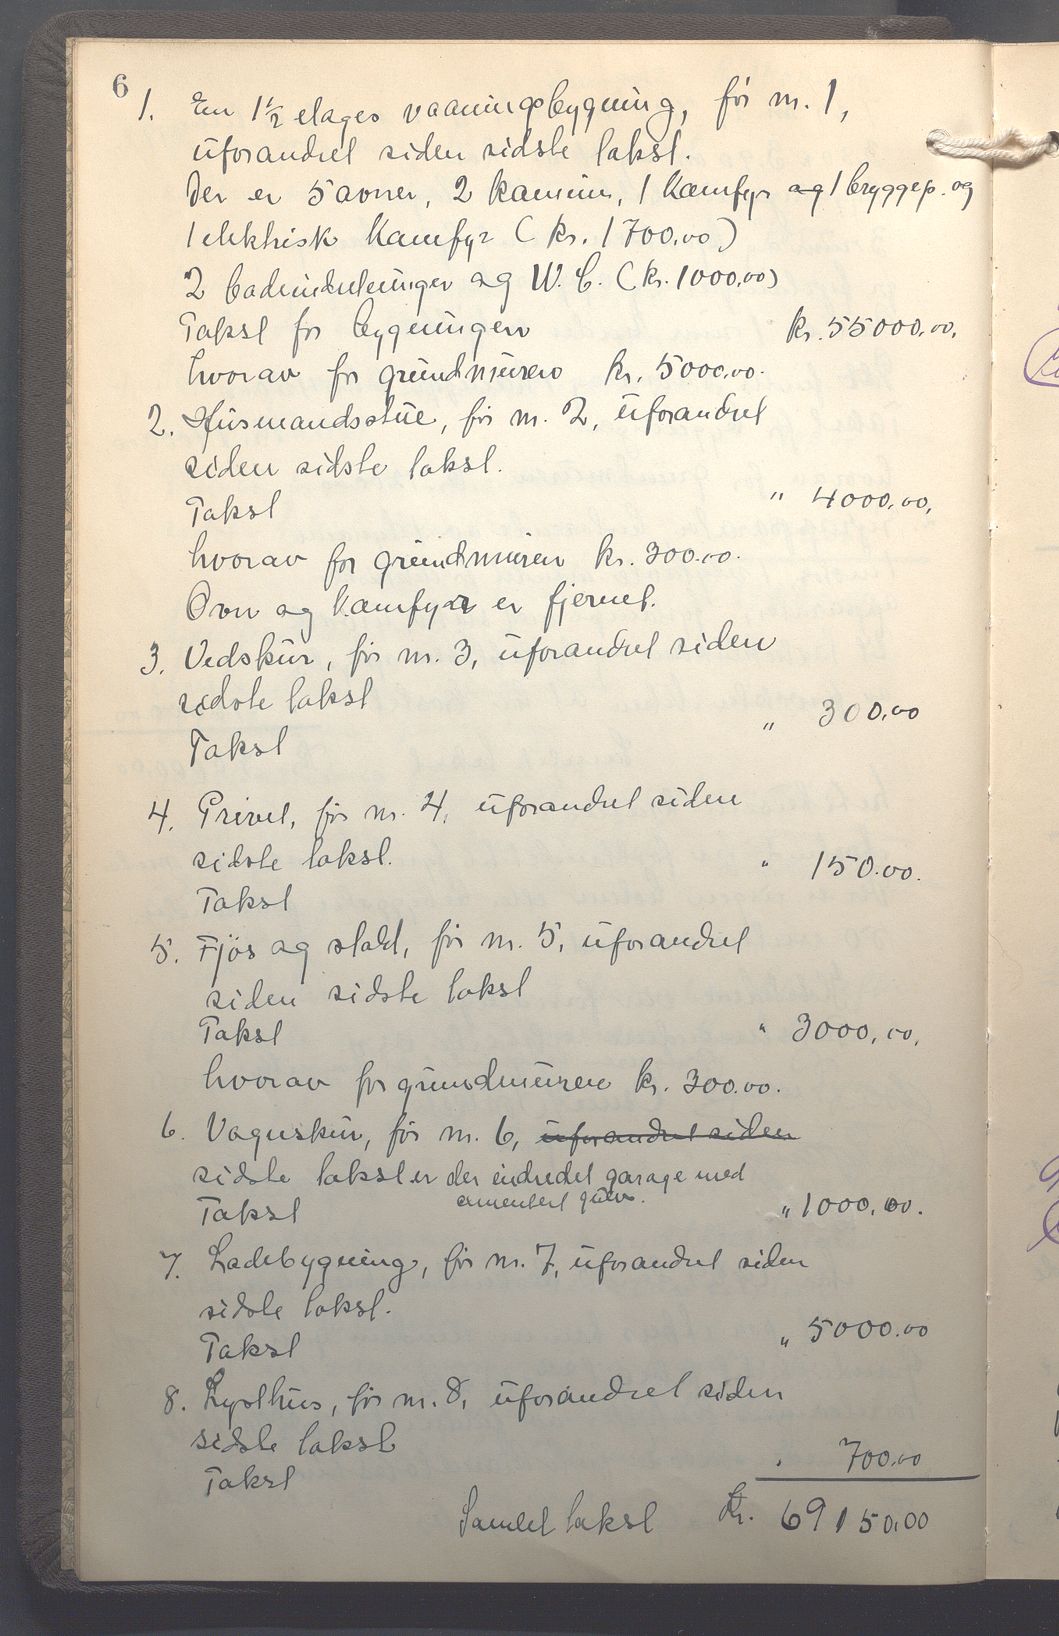 6
1. En 1½ etages vaaningsbygning, før nr. 1,
uforandret siden sidste takst.
Der er 5 ovner, 2 kaminer, 1 Komfyr og 1 bryggep. og
1 elektrisk Komfyr (kr. 1700,00)
2 badeindretninger og W.C. (kr. 1000,00)
Takst for bygningen kr. 55000,00,
hvorav for grundmuren kr. 5000,00.
2. Husmandsstue, før nr. 2, uforandret
siden sidste takst.
Takst " 4000,00,
hvorav for grundmuren kr. 300.00.
Ovn og komfyr er fjernet.
3. Vedskur, før nr. 3, uforandret siden
sidste takst
Takst " 300,00
4. Privet, før nr. 4, uforandret siden
sidste takst.
Takst " 150.00.
5. Fjøs og stald, før nr. 5, uforandret
siden sidste takst
Takst " 3000,00,
hvorav for grundmuren kr. 300.00.
6. Vognskur, før nr. 6, uforandret siden
sidste takst er der indredet garage med
cementert gulv.
Takst " 1000,00.
7. Ladebygning, før nr. 7, uforandret siden
sidste takst.
Takst " 5000.00
8. Lysthus, før nr. 8, uforandret siden
sidste takst
Takst " 700.00
Samlet takst Kr. 69150,00